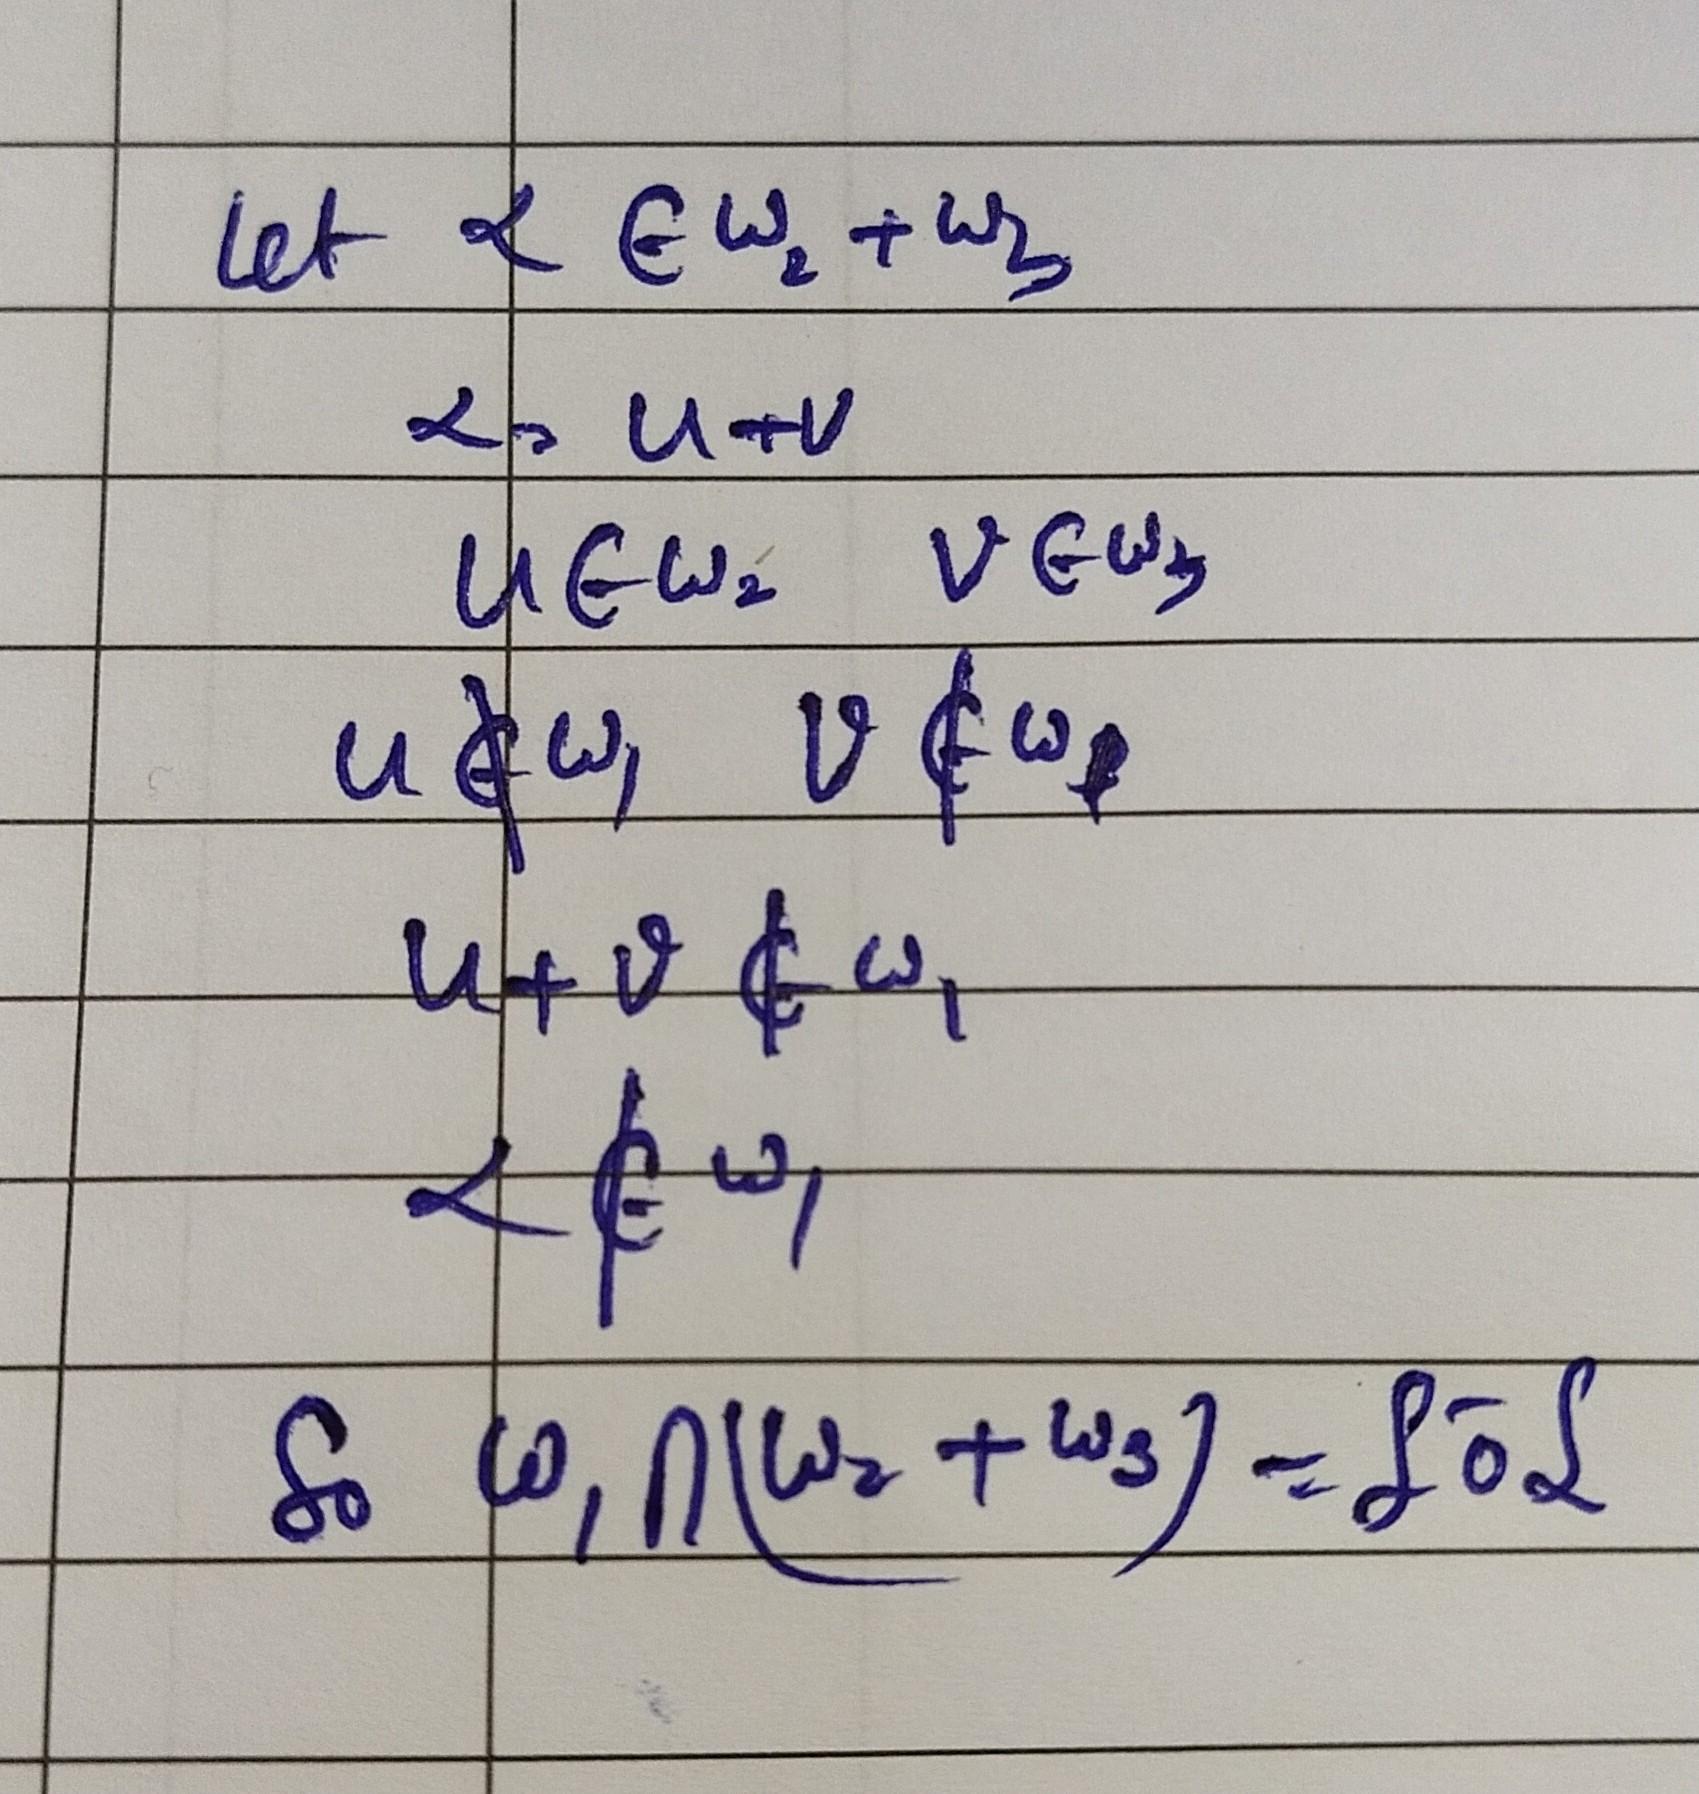 Let α ∈ W₂ + W₃
α = u + v
u ∈ W₂ v ∈ W₃
u ∉ W₁ v ∉ W₁
u + v ∉ W₁
α ∉ W₁
So W₁ ∩ (W₂ + W₃) = {0̄}